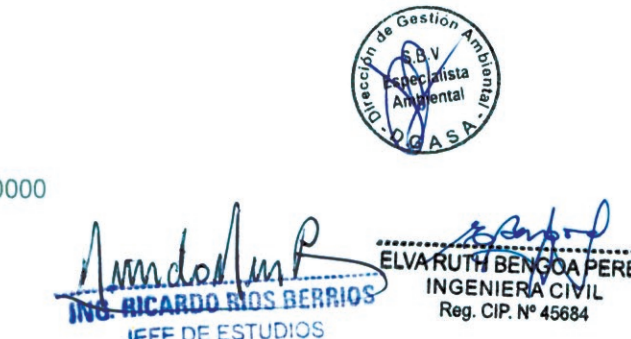 Dirección de Gestión Ambiental - DGASA -
S.B.V
Especialista
Ambiental
0000
ING. RICARDO RIOS BERRIOS
JEFE DE ESTUDIOS
ELVA RUTH BENGOA PERE
INGENIERA CIVIL
Reg. CIP. Nº 45684